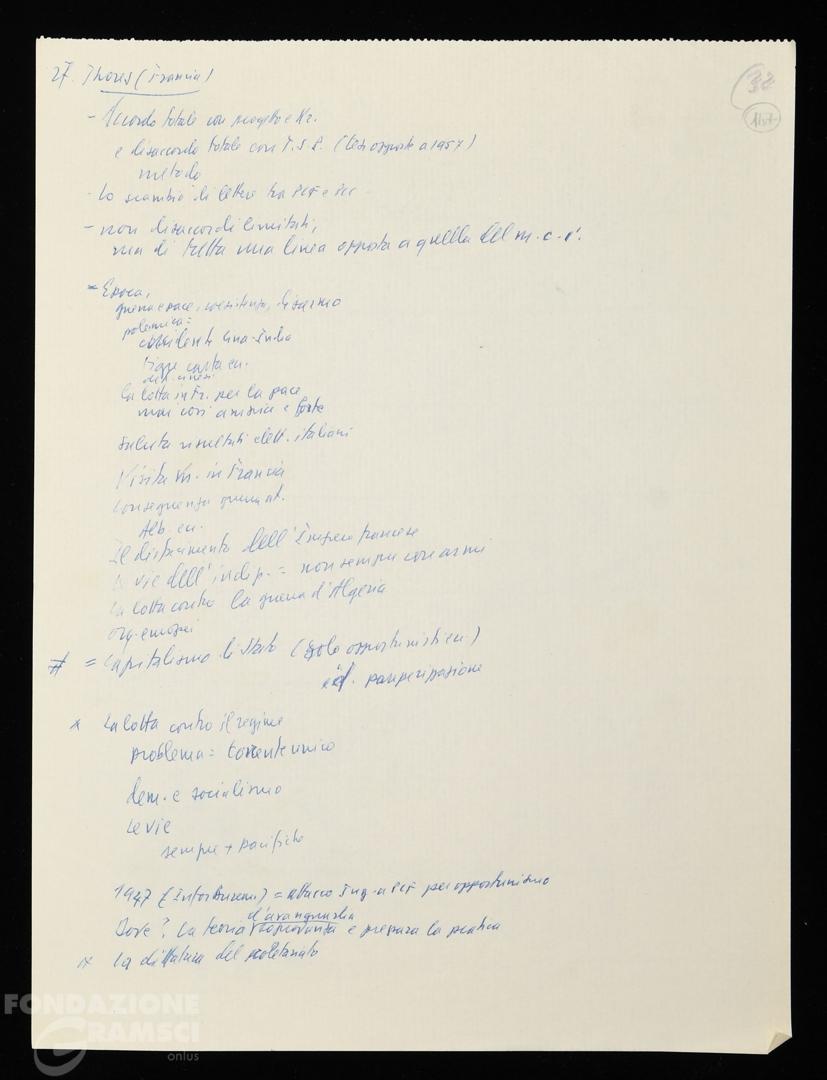 27. Thorez (Francia)
32
- Accordo totale con progetto e Kr.
e disaccordo totale con T. S. E. (tesi opposte a 1957)
metodo
- Lo scambio di lettere tra PCF e PCC
- non disaccordi limitati,
ma di tutta una linea opposta a quella del m. c. i.
= Epoca,
guerra e pace, coesistenza, disarmo
polemica =
incidente Cina-India
tigre carta
dei cinesi
la lotta in Fr. per la pace
non così ampia e forte
saluta risultati elett. italiani
Visita Kr. in Francia
conseguenza guerra at.
Alb.
Il disfacimento dell'Impero francese
le vie dell'indip. = non sempre con armi
la lotta contro la guerra d'Algeria
org. europei
# = Capitalismo di Stato (solo opportunisti)
pauperizzazione
x La lotta contro il regime
problema = fronte unico
dem. e socialismo
Le vie
sempre + pacifiche
1947 (Informburem.) = attacco Jug. a PCF per opportunismo
Dove? La teoria d'avanguardia e prepara la pratica
x La dittatura del proletariato
FONDAZIONE
GRAMSCI
onlus